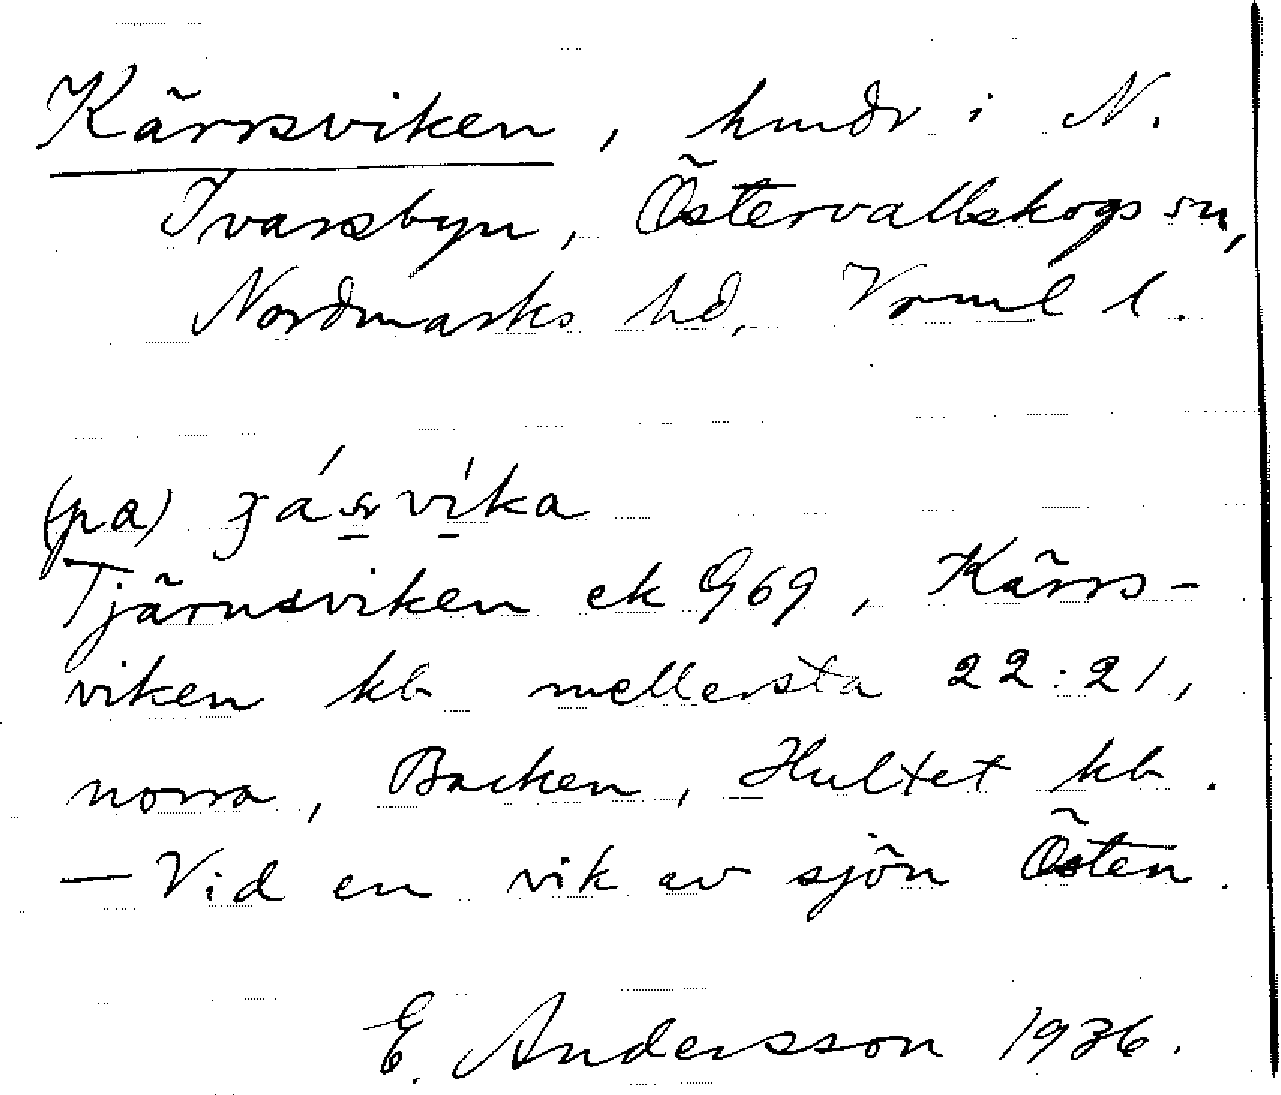 Kärrsviken, hmdr i N.
Ivarsbyn, Östervallskogs sn,
Nordmarks hd, Vrml l.
(pa) víka
Tjärnsviken ek G69, Kärrs-
viken kb mellersta 22:21,
norra, Backen, Hultet kb.
— Vid en vik av sjön Östen.
E. Andersson 1936.